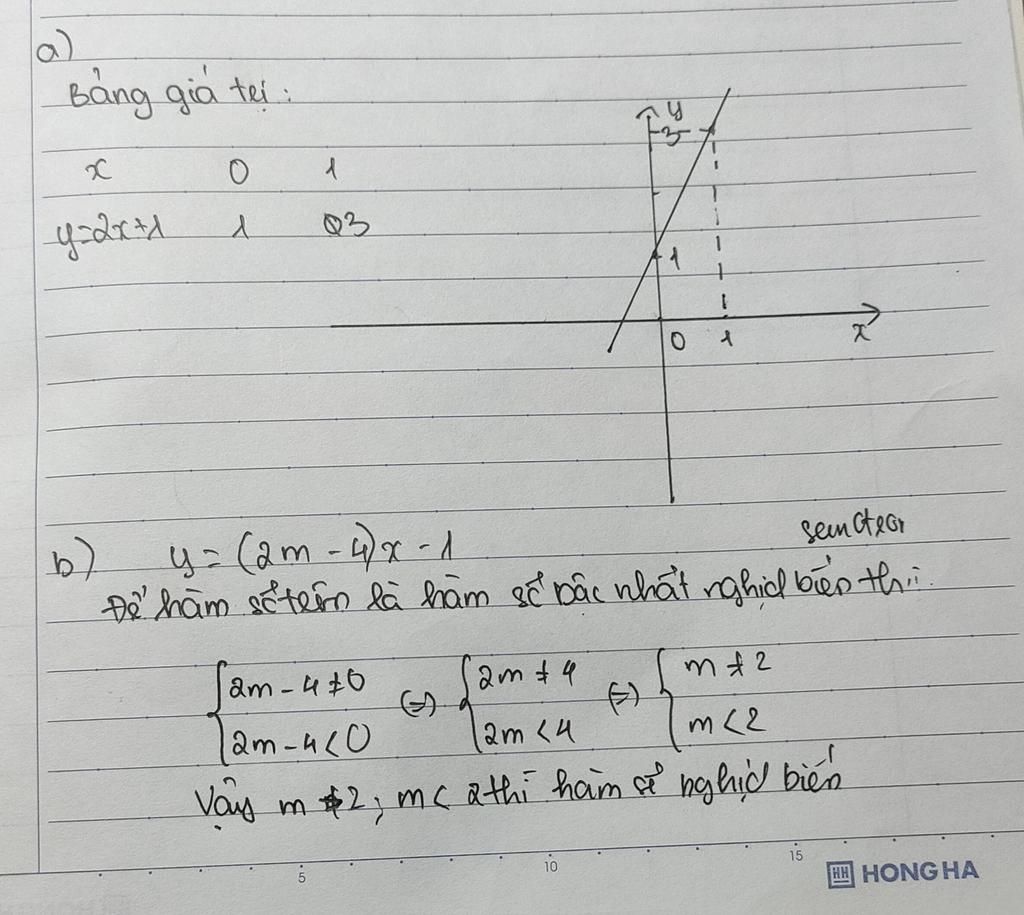 a)
Bảng giá trị:
x 0 1
y=2x+1 1 3
y
3
1
0 1 x
b) y = (2m - 4)x - 1
Để hàm số trên là hàm số bậc nhất nghịch biến thì:
{2m - 4 ≠ 0 <=> {2m ≠ 4 <=> {m ≠ 2
{2m - 4 < 0 {2m < 4 {m < 2
Vậy m ≠ 2; m < 2 thì hàm số nghịch biến
5 10 15
HH HONG HA